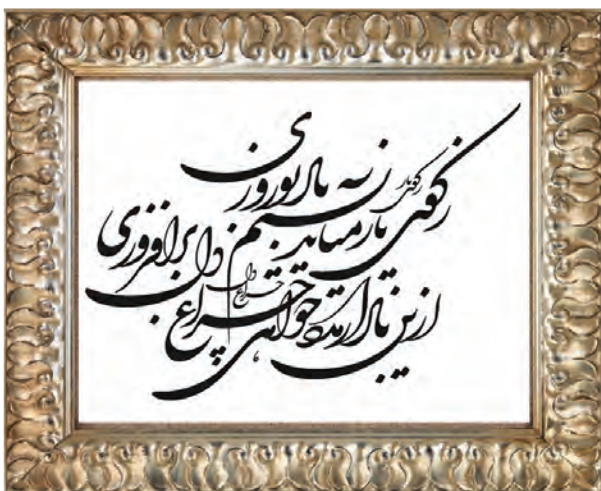 زکوی یار میاید نسیم باد نوروزی
ازین باد ار مدد خواهی چراغ دل برافروزی
چراغ دل